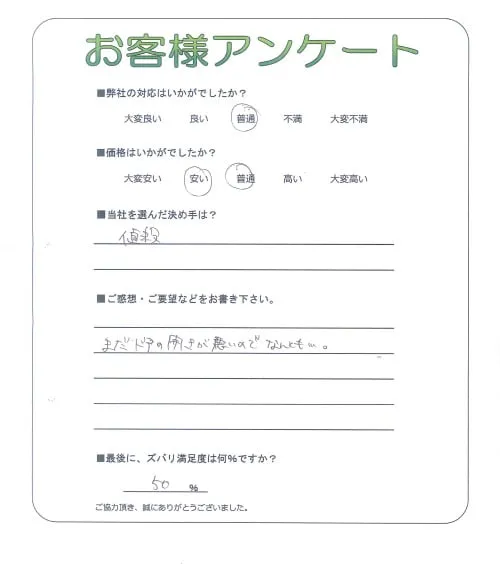 お客様アンケート
■弊社の対応はいかがでしたか？
大変良い 良い 普通 不満 大変不満
■価格はいかがでしたか？
大変安い 安い 普通 高い 大変高い
■当社を選んだ決め手は？
値段
■ご感想・ご要望などをお書き下さい。
まだドアの開きが悪いのでなんとも…。
■最後に、ズバリ満足度は何%ですか？
50 %
ご協力頂き、誠にありがとうございました。